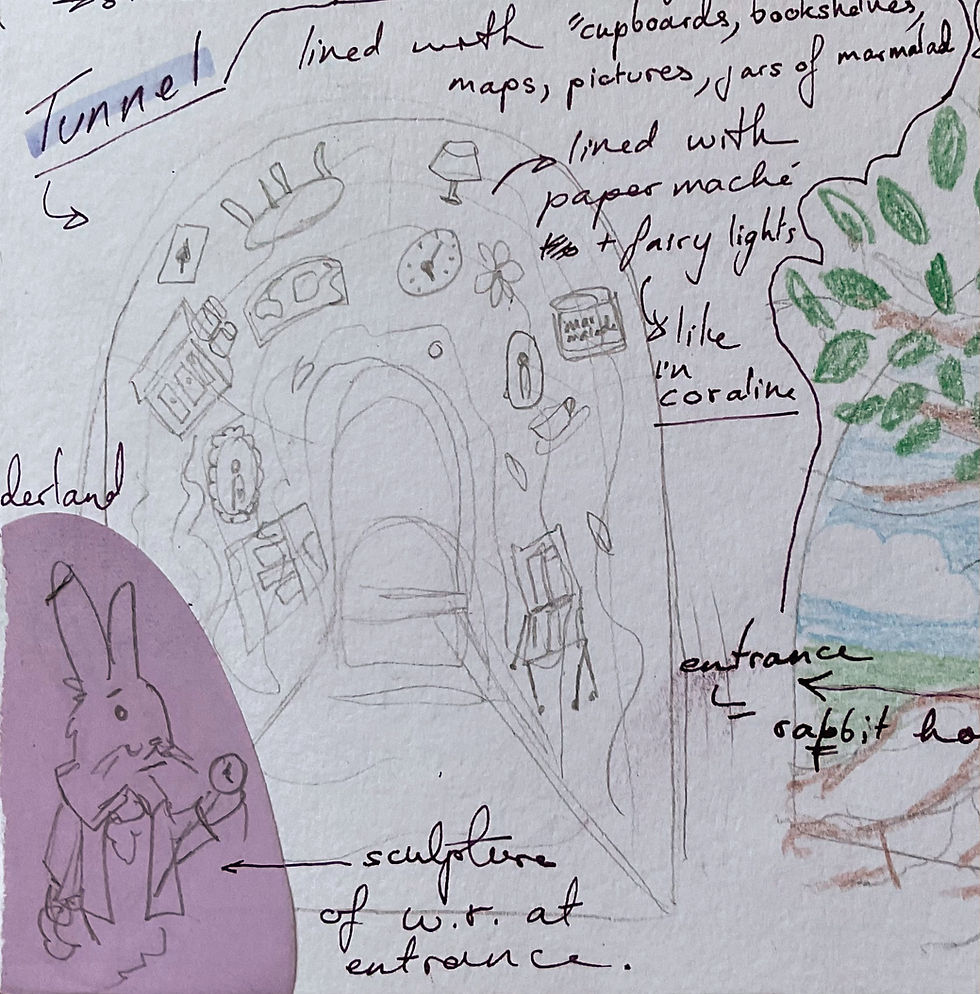 Tunnel
lined with "cupboards, bookshelves,
maps, pictures, jars of marmalad
lined with
paper maché
+ fairy lights
like
in
coraline
mar
malade
derland
entrance
rabbit ho
sculpture
of w.r. at
entrance.